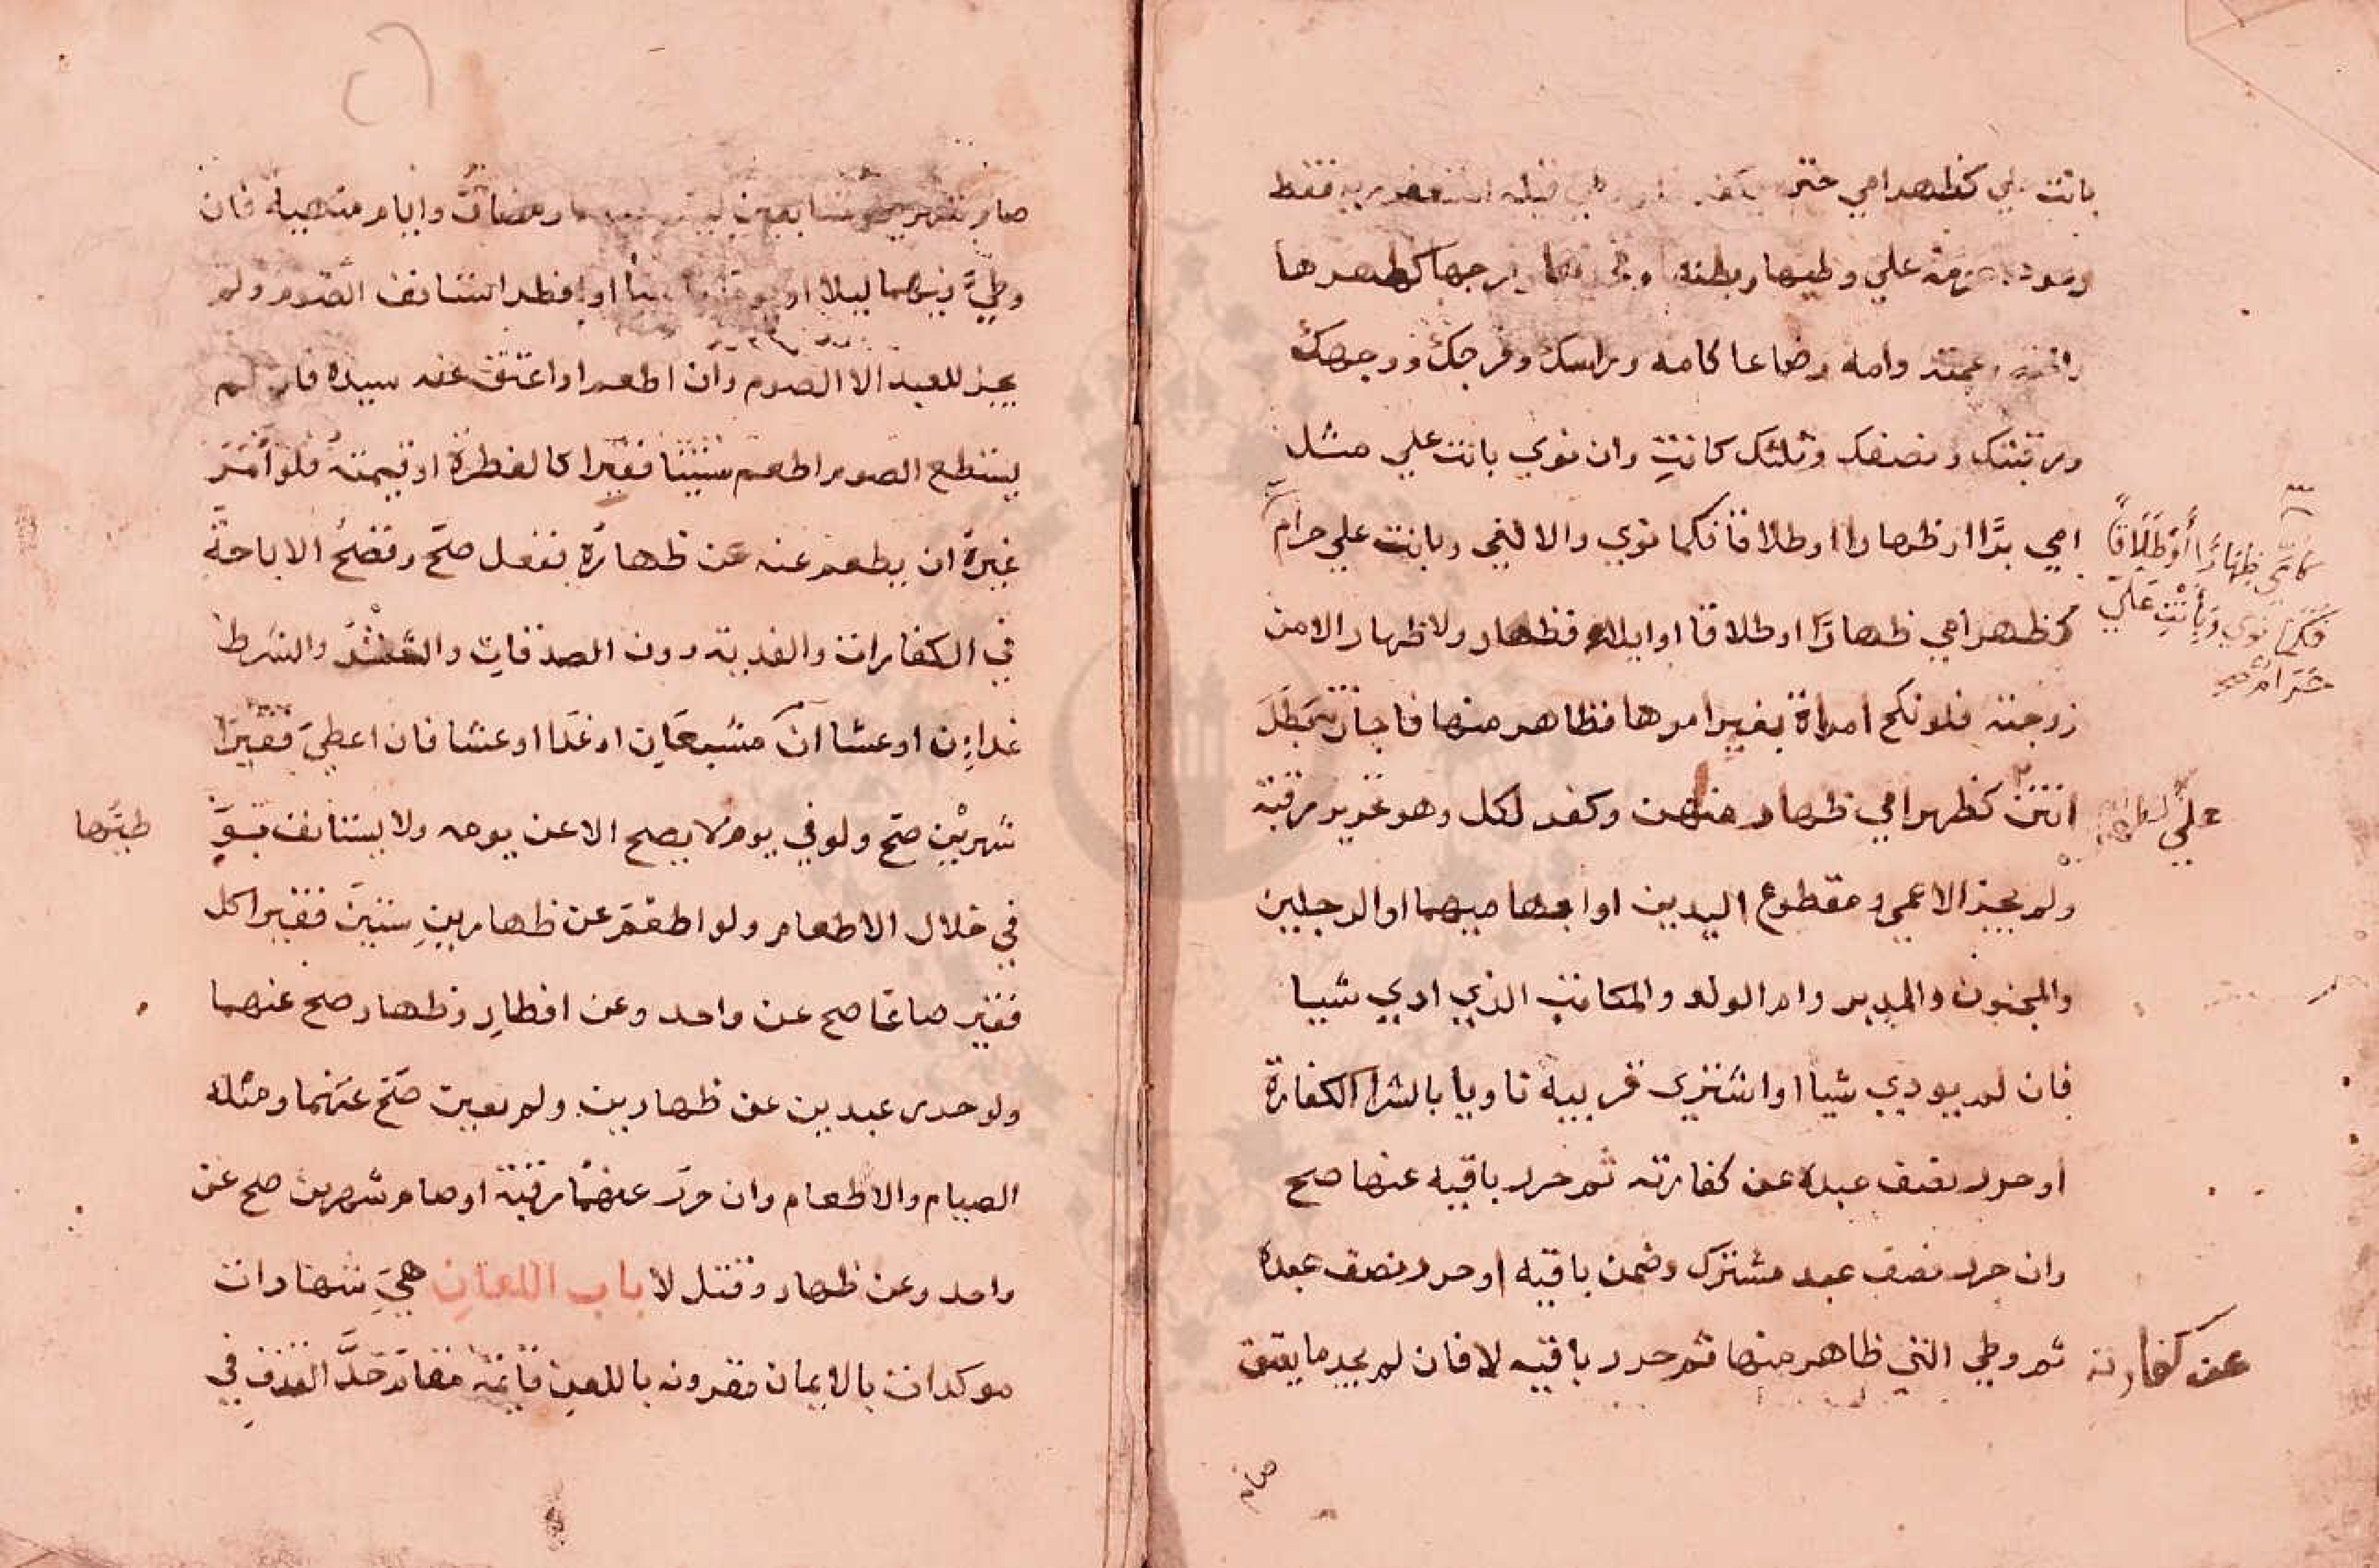 بانت علي كظهر امي حتي يكفر فلو وطي قبله استغفر ربه فقط
وعوده عزمه علي وطيها وبطنها وفخذها وفرجها كظهرها
واخته وعمته وامه رضاعا كامه وراسك وفرجك ووجهك
ورقبتك ونصفك وثلثك كانت وان نوي بانت علي مثل
امي برا او ظهارا او طلاقا فكما نوي والا لغي وبانت علي حرام
كظهر امي ظهارا او طلاقا او ايلاء فظهار ولا ظهار الا من
زوجته فلو نكح امراة بغير امرها فظاهر منها فاجازته بطل
انتن كظهر امي ظهار منهن وكفر لكل وهو تحرير رقبة
ولم يجز الاعمي ومقطوع اليدين او ابهاميهما او الرجلين
والمجنون والمدبر وام الولد والمكاتب الذي ادي شيا
فان لم يودي شيا او اشتري قريبه ناويا بالشرا الكفارة
او حرر نصف عبده عن كفارته ثم حرر باقيه عنها صح
وان حرر نصف عبد مشترك وضمن باقيه او حرر نصف عبده
ثم وطي التي ظاهر منها ثم حرر باقيه لا فان لم يجد ما يعتق
كامي ظهارا أو طلاقا
فكما نوي وبأنت علي
حرام صح
علي
عن كفارته
صام
صام شهرين متتابعين ليس فيهما رمضان وايام منهية فان
وطي فيهما ليلا او يوما ناسيا او افطر استانف الصوم ولم
يجز للعبد الا الصوم وان اطعم او اعتق عنه سيده فان لم
يستطع الصوم اطعم ستينا فقيرا كالفطرة او قيمته فلو أمر
غيره ان يطعم عنه عن ظهاره ففعل صح وتصح الاباحة
في الكفارات والفدية دون الصدقات والعشر والشرط
غداان او عشاان مشبعان او غدا او عشا فان اعطي فقيرا
شهرين صح ولو في يوم لا يصح الا عن يومه ولا يستانف بوطيها
في خلال الاطعام ولو اطعم عن ظهارين ستين فقيرا كل
فقير صاعا صح عن واحد وعن افطار وظهار صح عنهما
ولو حرر عبدين عن ظهارين ولم يعين صح عنهما ومثله
الصيام والاطعام وان حرر عنهما رقبة او صام شهرين صح عن
واحد وعن ظهار وقتل لا باب اللعان هي شهادات
موكدات بالايمان مقرونه باللعن قائمة مقام حد القذف في